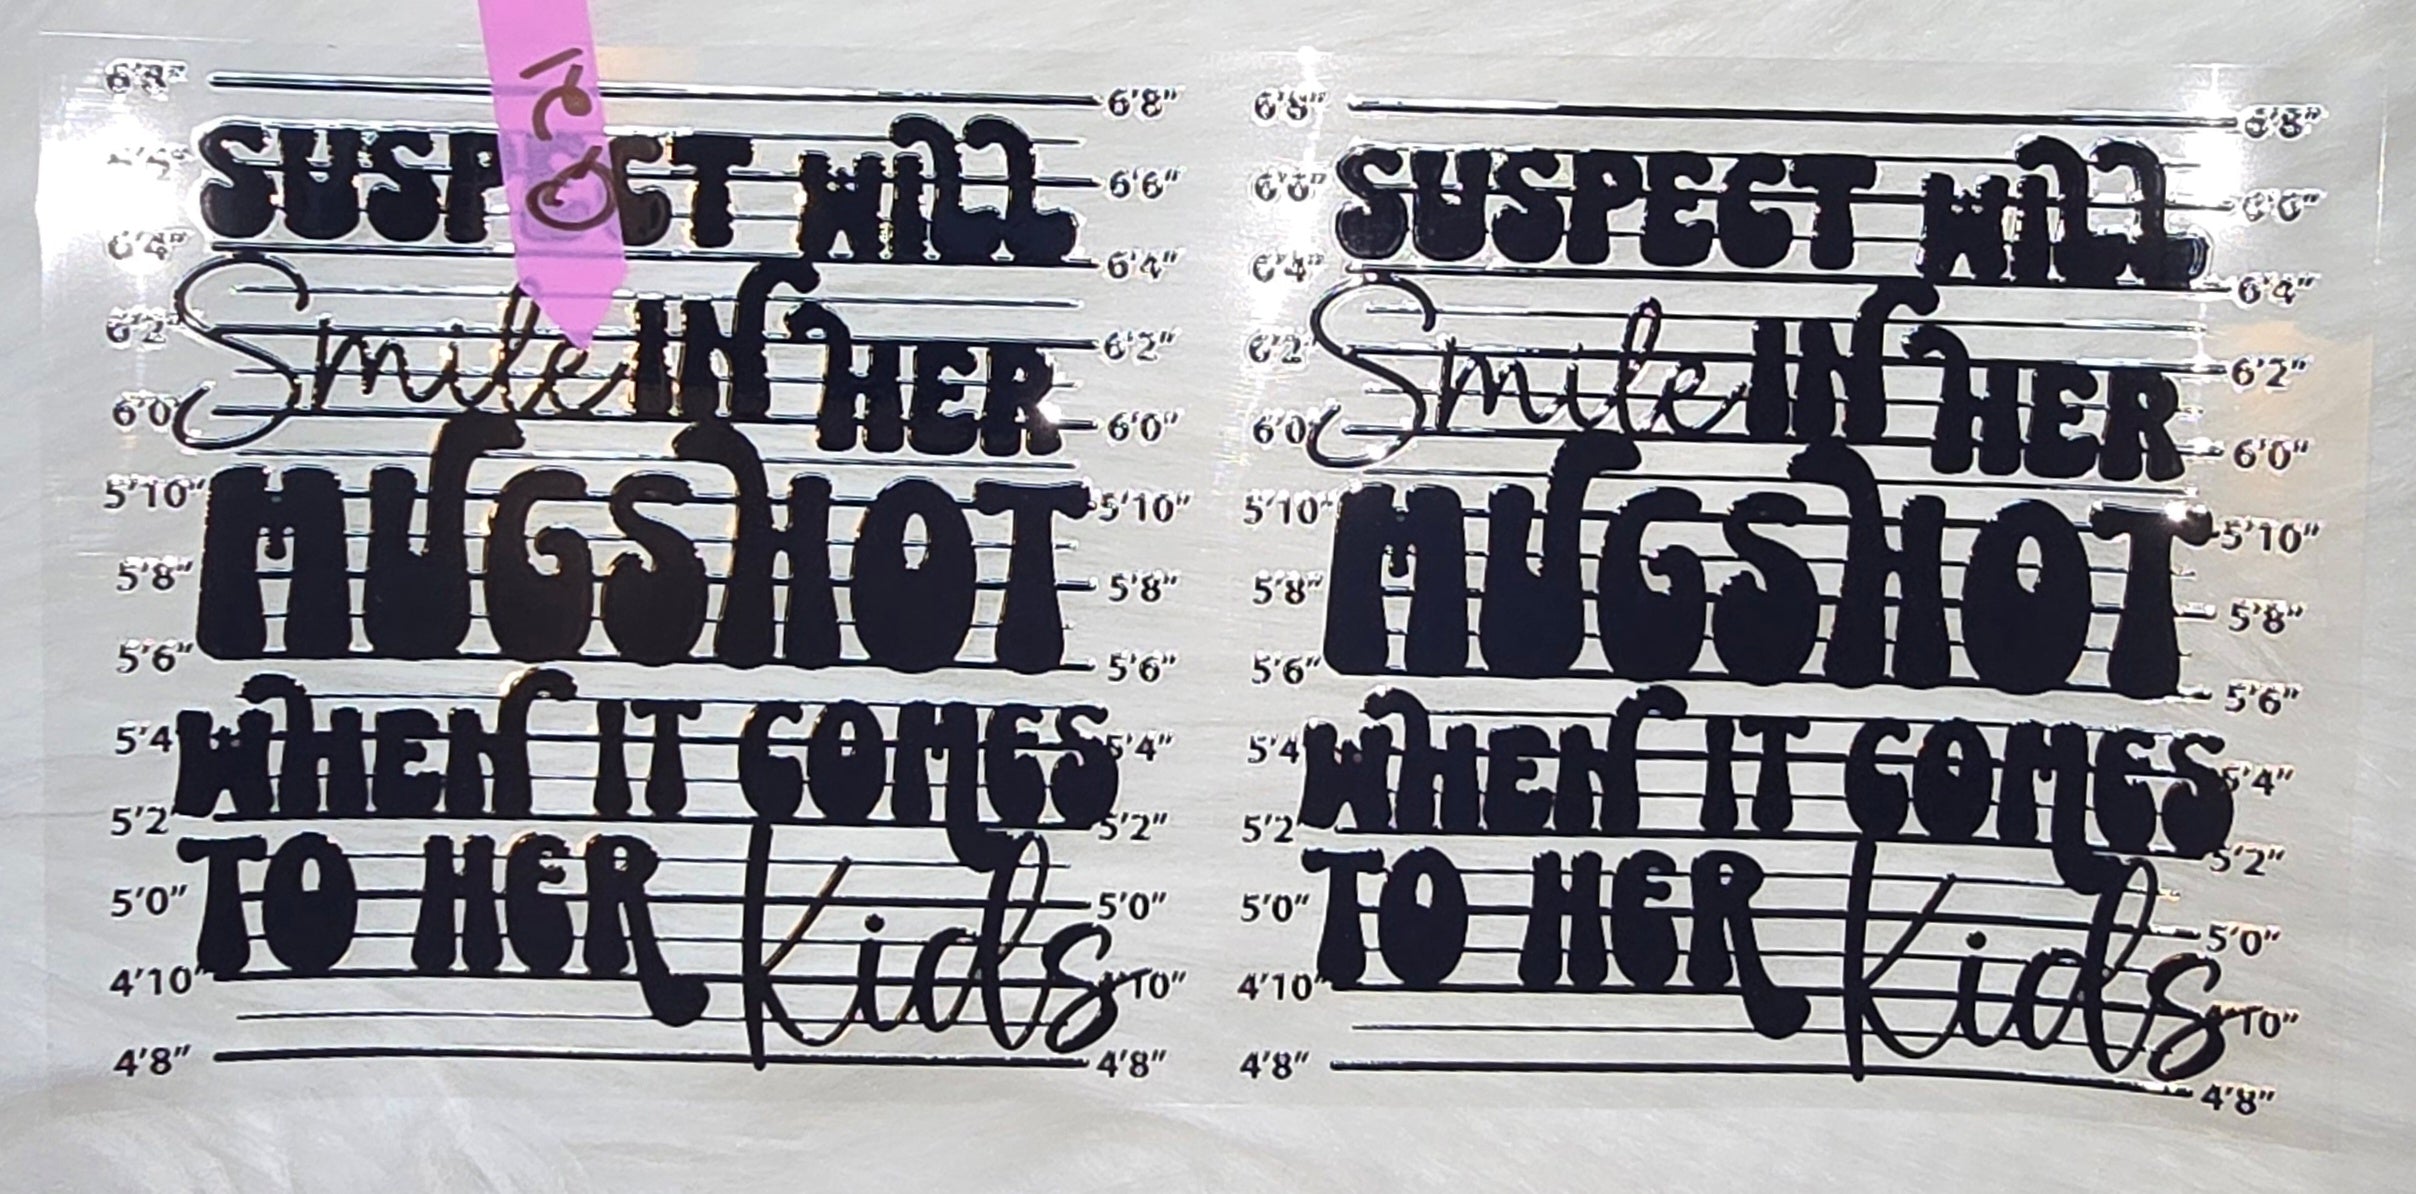 6'8" 6'8"
SUSPECT WILL
6'6"
6'4" 6'4"
Smile IN HER
6'2" 6'2"
6'0 6'0"
MUGSHOT
5'10" 5'10"
5'8" 5'8"
5'6" 5'6"
WHEN IT COMES
5'4 5'4"
5'2" 5'2"
TO HER Kids
5'0" 5'0"
4'10" 10"
4'8" 4'8"
6'8" 6'8"
SUSPECT WILL
6'6" 6'6"
6'4" 6'4"
Smile IN HER
6'2" 6'2"
6'0 6'0"
MUGSHOT
5'10" 5'10"
5'8" 5'8"
5'6" 5'6"
WHEN IT COMES
5'4 5'4"
5'2" 5'2"
TO HER Kids
5'0" 5'0"
4'10" 10"
4'8" 4'8"